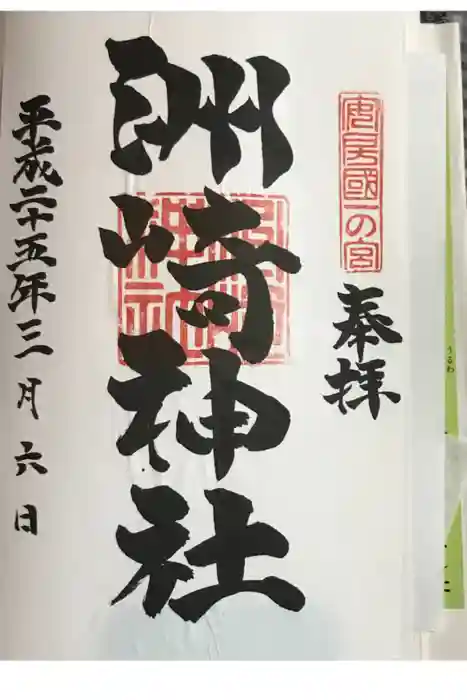 うるわ
安房國一の宮
奉拝
洲崎神社
平成二十五年三月六日